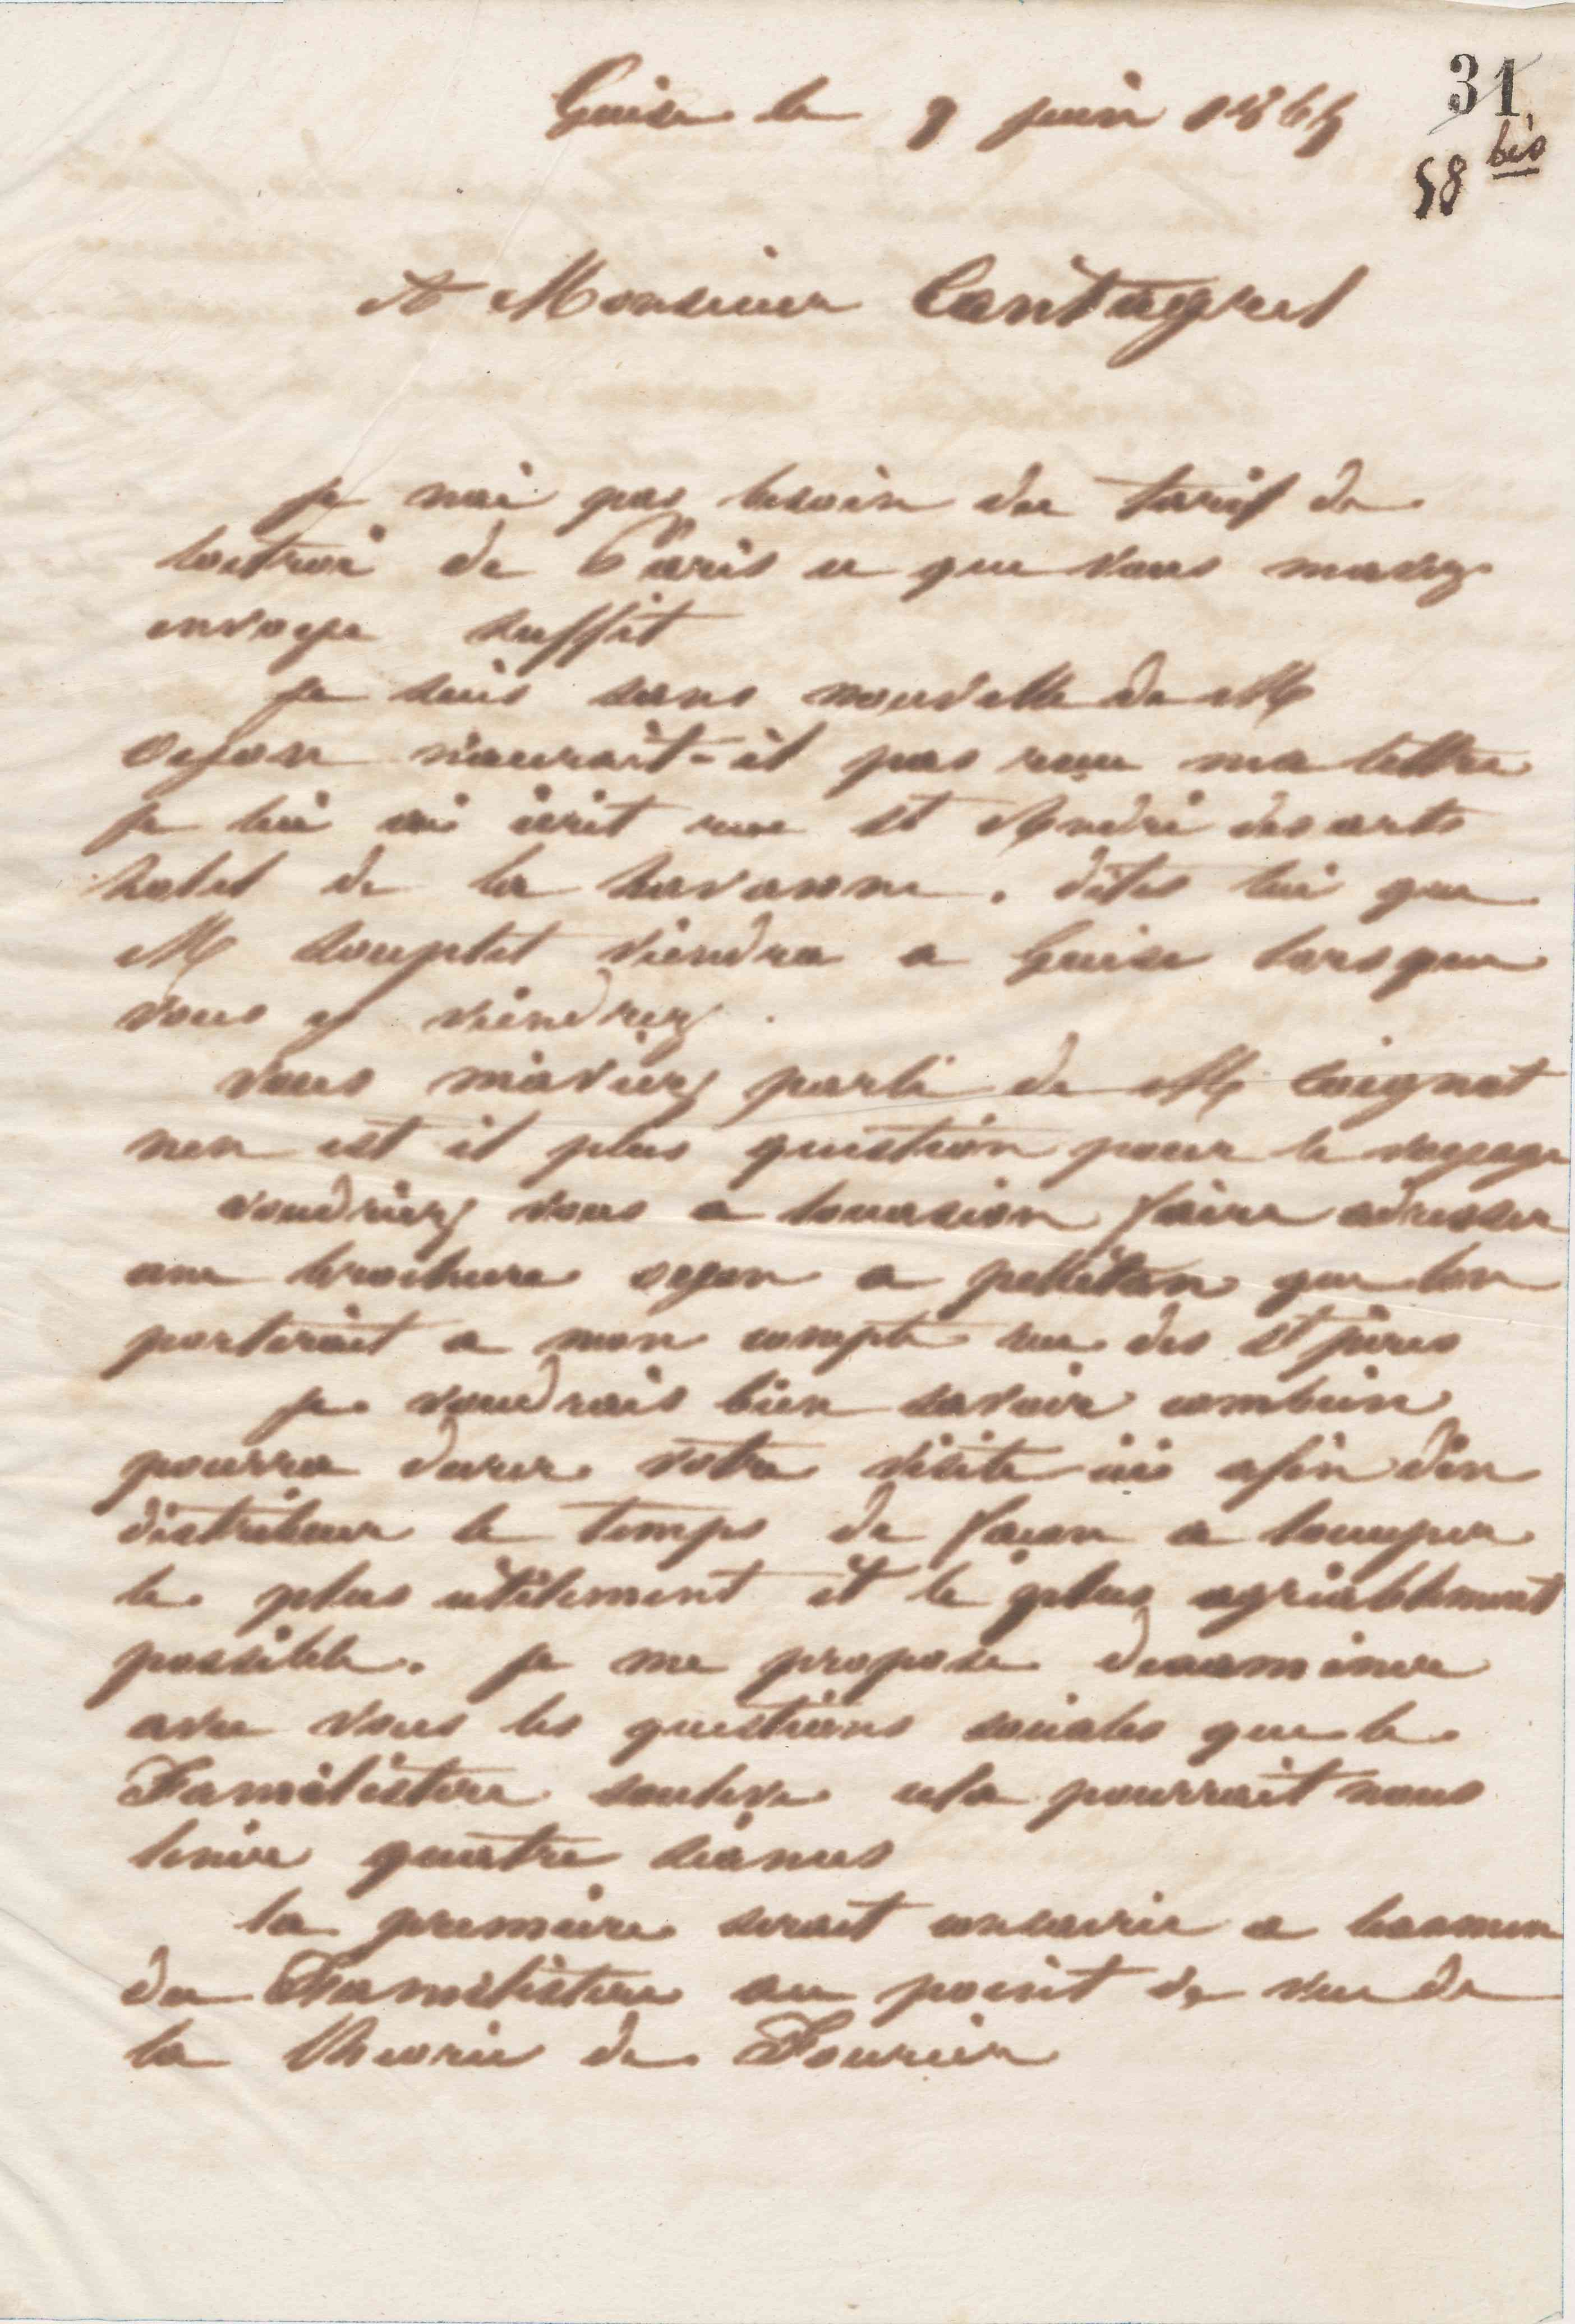 Guise le 9 juin 1865
31
58 bis
A Monsieur Cantagrel
je nai pas besoin du tarif de
loctroi de Paris ce que vous mavez
envoye suffit
je suis sans nouvelle de M
Oyon n'aurait-il pas recu ma lettre
je lui ai ecrit rue St André des arts
hotel de la havanne. dites lui que
M Souplet viendra a Guise lorsque
vous y viendrez.
vous m'aviez parlé de M Coignet
nen est il plus question pour le voyage
voudriez vous a loccasion faire adresser
une brochure oyon a pelletan que lon
porterait a mon compte rue des St pères
je voudrais bien savoir combien
pourra durer votre visite ici afin d'en
distribuer le temps de facon a loccuper
le plus utilement et le plus agréablement
possible. je me propose dexaminer
avec vous les questions sociales que le
Familistère soulève cela pourrait nous
tenir quatre séances
la premiere serait consacrée a lexamen
du Familistère au point de vue de
la théorie de Fourier